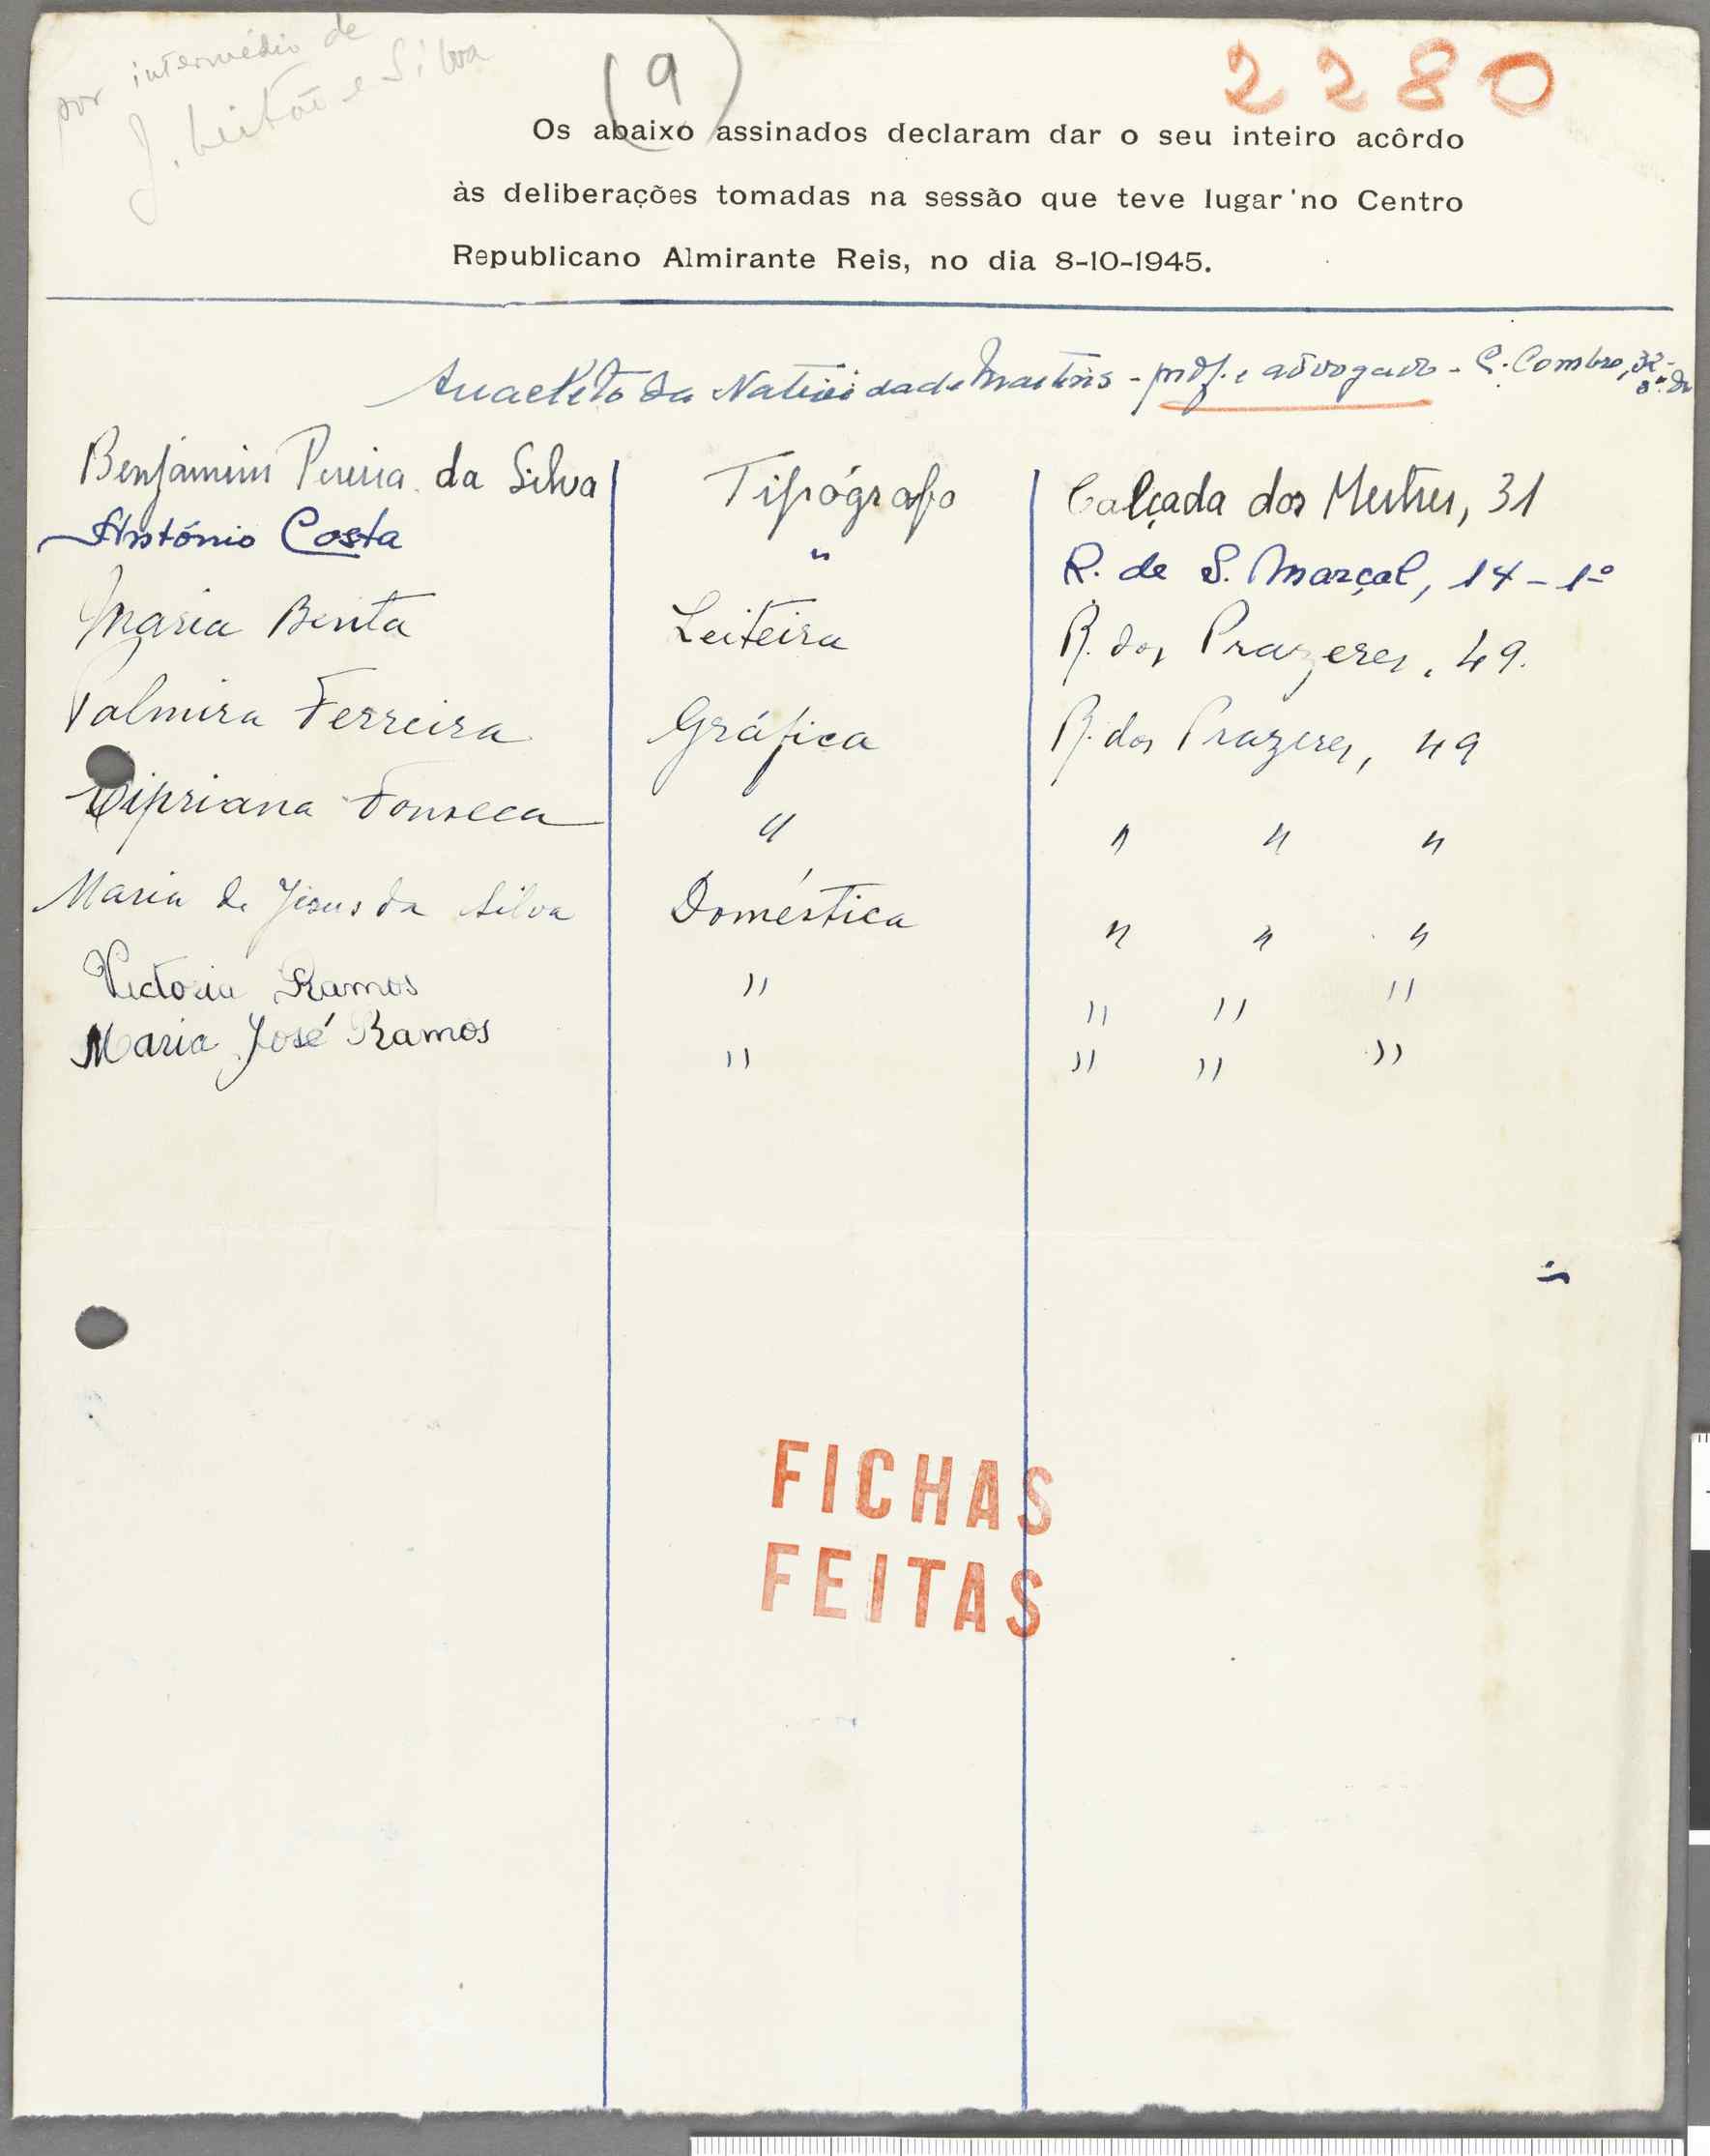 por intermédio de
J. Leitão e Silva
(9)
2280
Os abaixo assinados declaram dar o seu inteiro acôrdo
às deliberações tomadas na sessão que teve lugar no Centro
Republicano Almirante Reis, no dia 8-10-1945.
Anacleto da Natividade Martins - prof. e advogado - C. Combro, 32-
Benjamim Pereira da Silva Tipógrafo Calçada dos Mestres, 31
António Costa " R. de S. Marçal, 14-1º
Maria Benta Leiteira R. dos Prazeres, 49.
Palmira Ferreira Gráfica R. dos Prazeres, 49
Cipriana Fonseca " " " "
Maria de Jesus da Silva Doméstica " " "
Victoria Ramos " " " "
Maria José Ramos " " " "
FICHAS
FEITAS